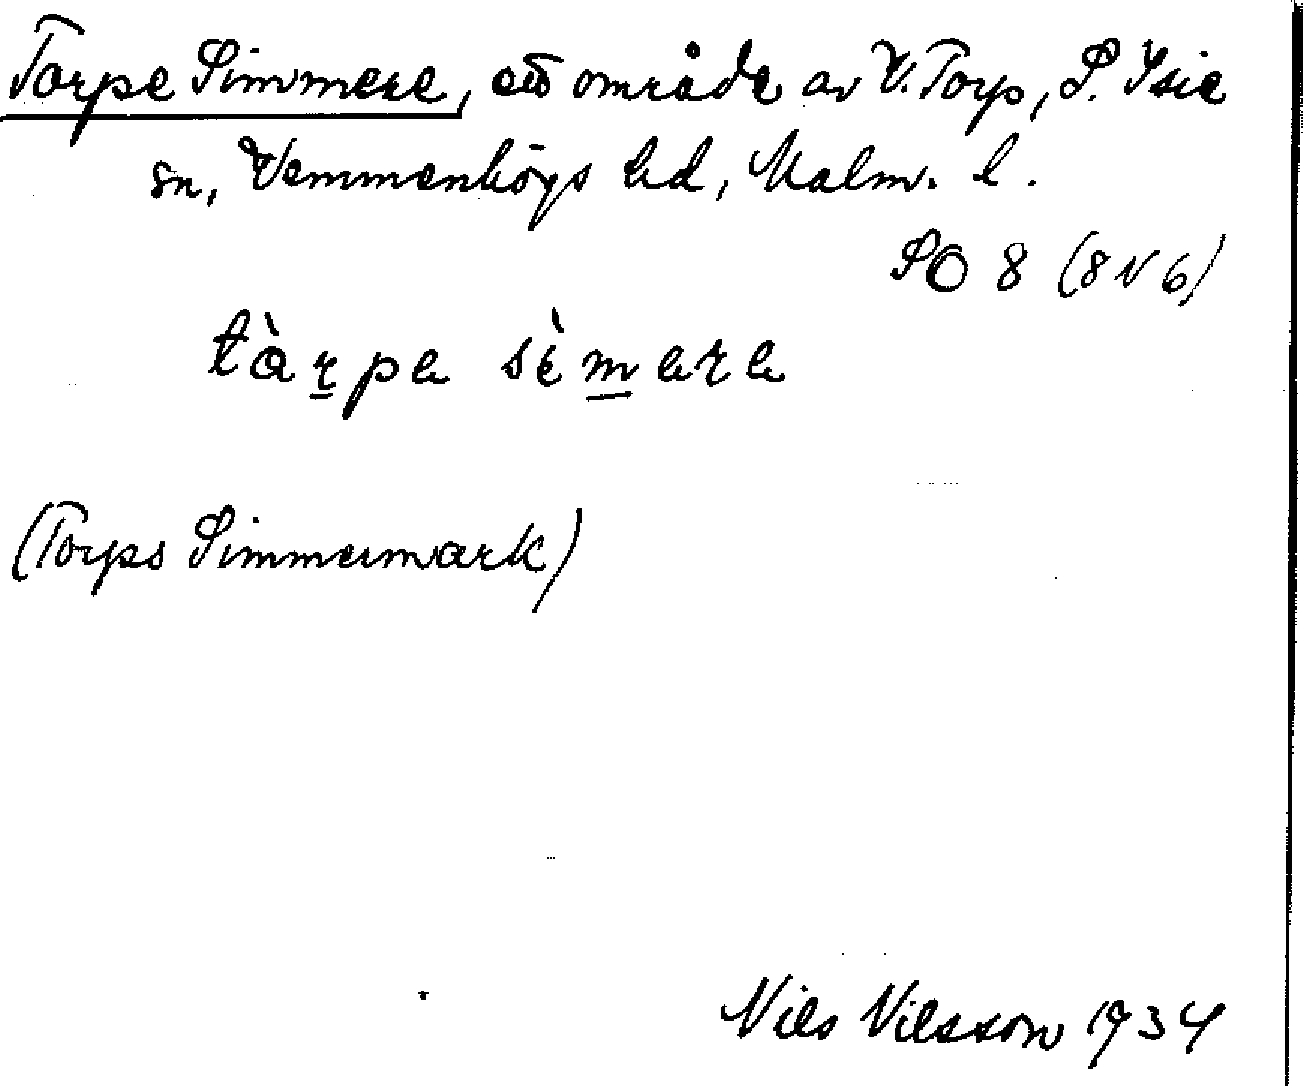 Torpe Simmere, ett område av V. Torp, S. Ysie
sn, Vemmenhögs hd, Malm. l.
SO 8 (8 V 6)
tàr̲pa sèm̲ara
(Torps Simmermark)
Nils Nilsson 1934